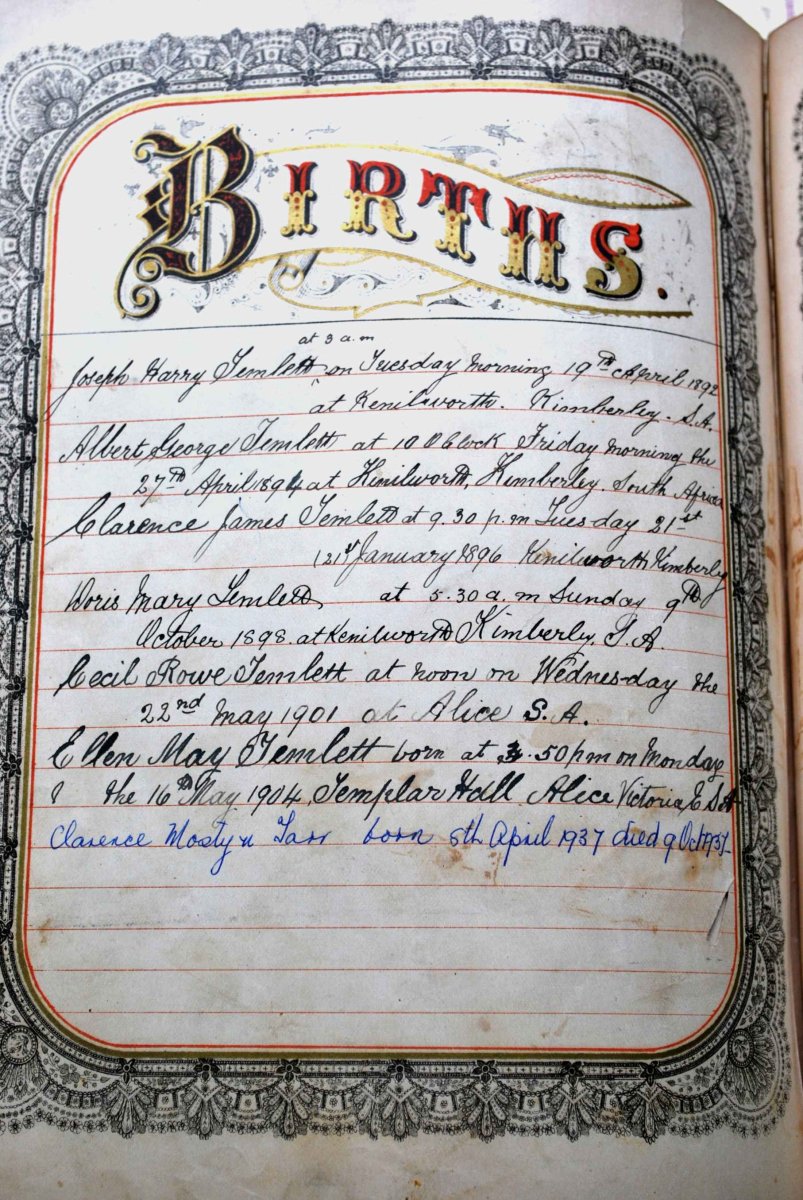 BIRTHS.
at 3 a.m
Joseph Harry Temlett on Tuesday morning 19th April 1892
at Kenilworth. Kimberley. S.A.
Albert George Temlett at 10 O Clock Friday morning the
27th April 1894 at Kenilworth, Kimberley. South Africa
Clarence James Temlett at 9.30 p.m Tuesday 21st
(21st January 1896 Kenilworth Kimberley
Doris Mary Temlett at 5.30 a.m Sunday 9th
October 1898. at Kenilworth Kimberley. S.A.
Cecil Rowe Temlett at noon on Wednesday the
22nd May 1901 at Alice S.A.
Ellen May Temlett born at 3.50 pm on Monday
the 16th May 1904, Templar Hall Alice Victoria E S A
Clarence Mostyn Tarr born 8th April 1937 died 9 Oct 1937